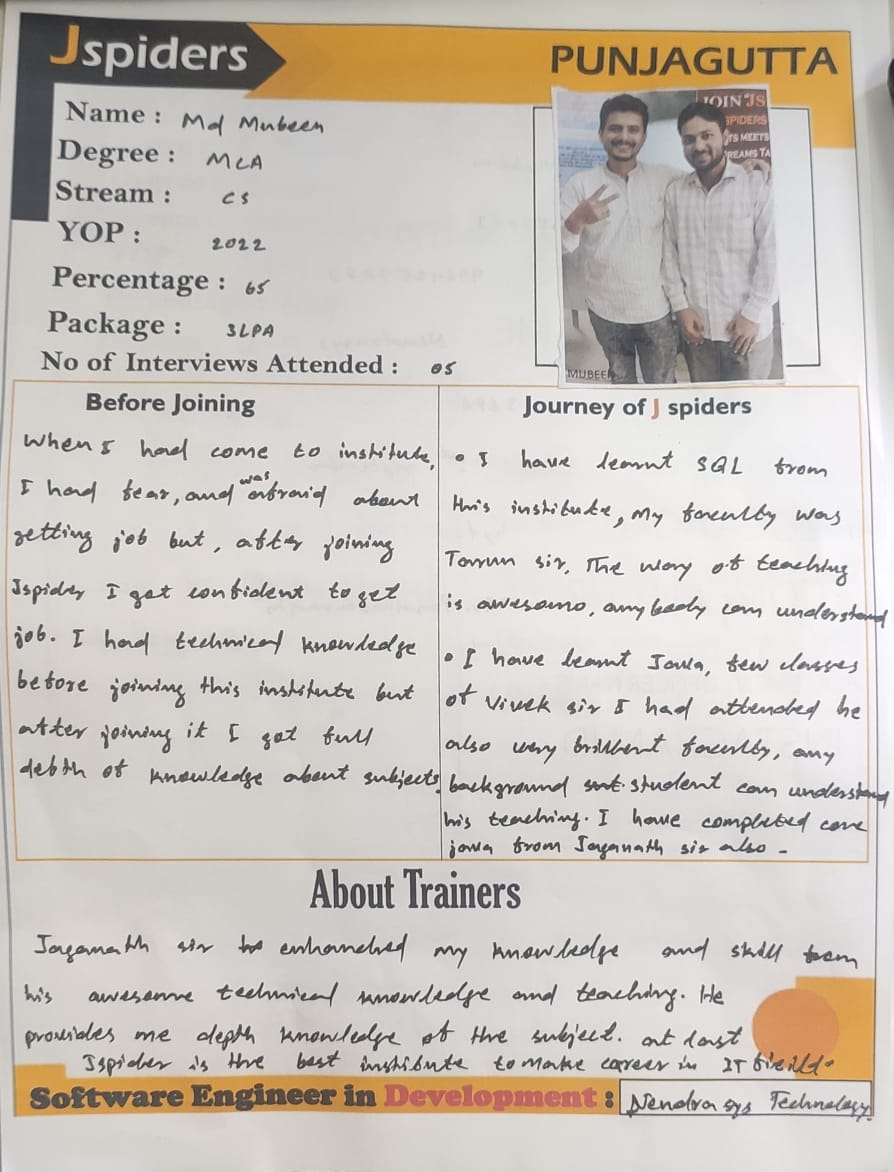 Jspiders
PUNJAGUTTA
Name : Md Mubeen
Degree : MCA
Stream : CS
YOP : 2022
Percentage : 65
Package : 3LPA
No of Interviews Attended : 05
JOIN JS
SPIDERS
TS MEETS
REAMS TA
MUBEE
Before Joining
When I had come to institute,
I had fear, and was afraid about
getting job but, after joining
Jspider I got confident to get
job. I had technical knowledge
before joining this institute but
after joining it I got full
debth of knowledge about subjects.
Journey of J spiders
• I have learnt SQL from
this institute, My faculty was
Tarun sir, The way of teaching
is awesome, anybody can understand
• I have learnt Java, few classes
of Vivek sir I had attended he
also very brillient faculty, any
background student can understand
his teaching. I have completed core
java from Jaganath sir also -
About Trainers
Jaganath sir enhanched my knowledge and skill from
his awesome technical knowledge and teaching. He
provides me depth knowledge of the subject. at last
Jspider is the best institute to make career in IT field.
Software Engineer in Development : Nendrasys Technology.